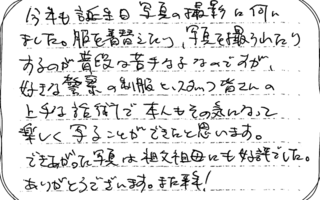 今年も誕生日写真の撮影に伺い
ました。服を着替えたり、写真を撮られたり
するのが普段は苦手な子なのですが、
好きな警察の制服と、スタッフ皆さんの
上手な話術で本人もその気になって
楽しく写ることができたと思います。
できあがった写真は祖父祖母にも好評でした。
ありがとうございます。また来年!